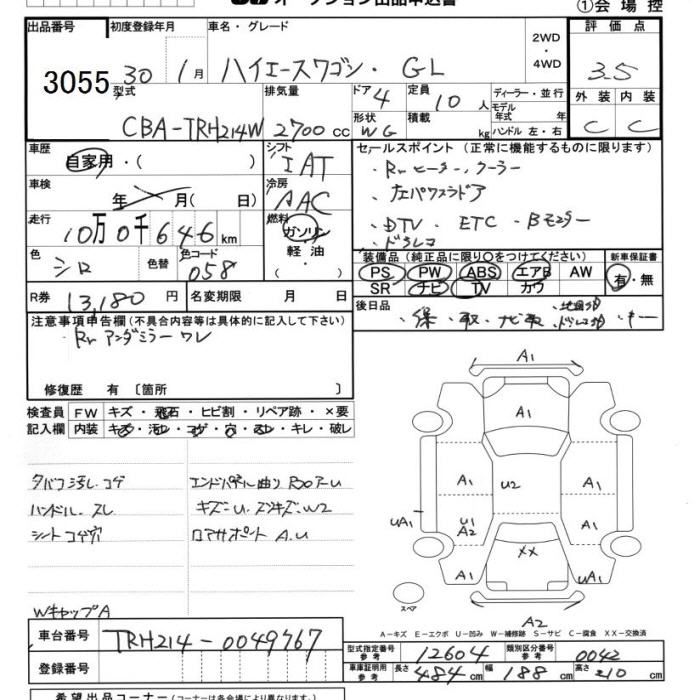 オークション出品申込書
①会場控
出品番号 3055
初度登録年月 30 1月
車名・グレード ハイエースワゴン・GL
2WD・4WD
評価点 3.5
外装 C
内装 C
型式 CBA-TRH214W
排気量 2700cc
ドア 4
形状 WG
定員 10人
積載 kg
ディーラー・並行
モデル年式 年
ハンドル 左・右
車歴 自家用・( )
シフト IAT
車検 年 月( 日)
冷房 AAC
走行 10万0千646km
燃料 ガソリン 軽油 ( )
色 シロ
色替
色コード 058
R券 13,180円
名変期限 月 日
セールスポイント (正常に機能するものに限ります)
・Rrヒーター・クーラー
・左パワスラドア
・DTV・ETC・Bモニター
・ドラレコ
装備品(純正品に限り○をつけてください)
PS PW ABS エアB AW
SR ナビ TV カワ
新車保証書 有・無
後日品 ・保・取・ナビ取・地図SD・ドラレコ取・キー
注意事項申告欄(不具合内容等は具体的に記入して下さい)
・Rrアンダミラーワレ
修復歴 有 〔箇所 〕
検査員記入欄
FW キズ・飛石・ヒビ割・リペア跡・×要
内装 キズ・汚れ・コゲ・穴・スレ・キレ・破レ
タバコ汚し・コゲ
ハンドル・スレ
シートコゲ穴
WキャップA
エンドパネル曲り RooF-U
キズ-U・ズリキズ-W2
ロアサポート A.U
A1
A1
A1
U2
A1
UA1
U1
A2
A1
XX
A1
UA1
スペア
A2
A-キズ E-エクボ U-凹み W-補修跡 S-サビ C-腐食 XX-交換済
車台番号 TRH214-0049767
登録番号
型式指定番号 参考 12604
類別区分番号 参考 0042
車庫証明用 参考 長さ 484cm 幅 188cm 高さ 210cm
希望出品コーナー (コーナーは各会場により異なります)